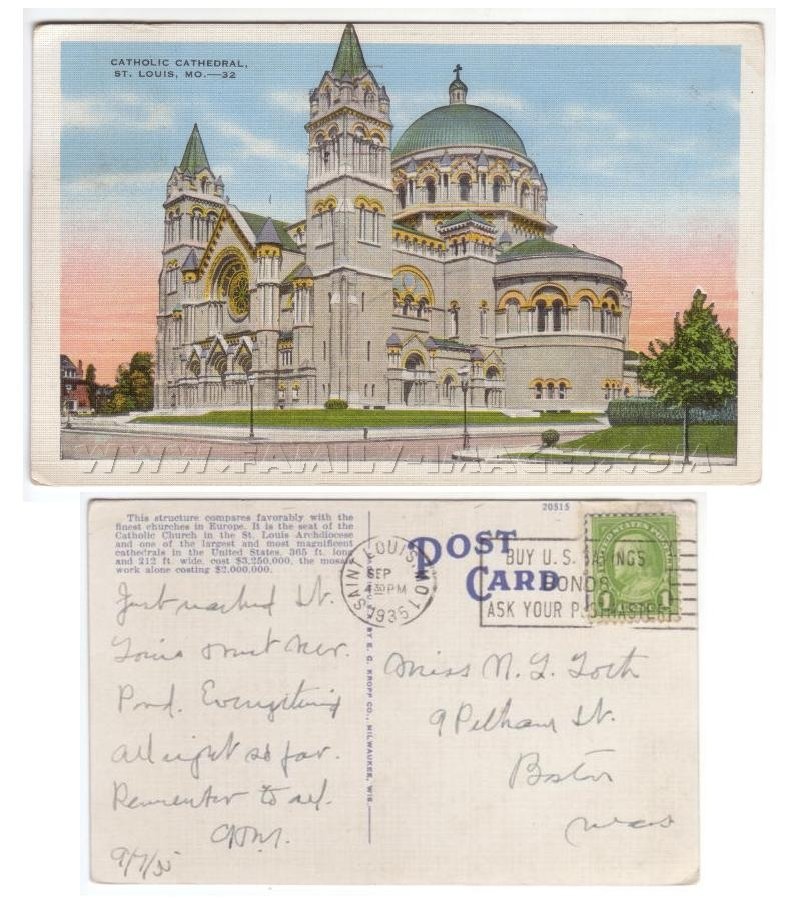 CATHOLIC CATHEDRAL,
ST. LOUIS, MO.—32
WWW.FAMILY-IMAGES.COM
20515
This structure compares favorably with the
finest churches in Europe. It is the seat of the
Catholic Church in the St. Louis Archdiocese
and one of the largest and most magnificent
cathedrals in the United States. 365 ft. long
and 212 ft. wide, cost $3,250,000, the mosaic
work alone costing $2,000,000.
POST
CARD
SAINT LOUIS, MO. 1
SEP
4 30 PM
1935
BUY U.S. SAVINGS
BONDS
ASK YOUR POSTMASTER
UNITED STATES POSTAGE
1
BY E. C. KROPP CO., MILWAUKEE, WIS.
Just reached St.
Louis
Everything
All right so far.
Remember to all.
9/7/35
Miss N. L.
9 Pelham St.
Boston
Mass